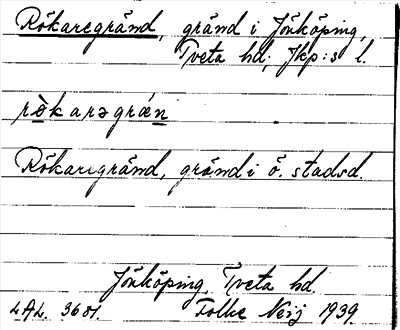 Rökaregränd, gränd i Jönköping,
Tveta hd, Jkp:s l.
rökarəgrän
Rökaregränd, gränd i ö. stadsd.
Jönköping, Tveta hd.
LAL. 3681. Folke Neij 1939.